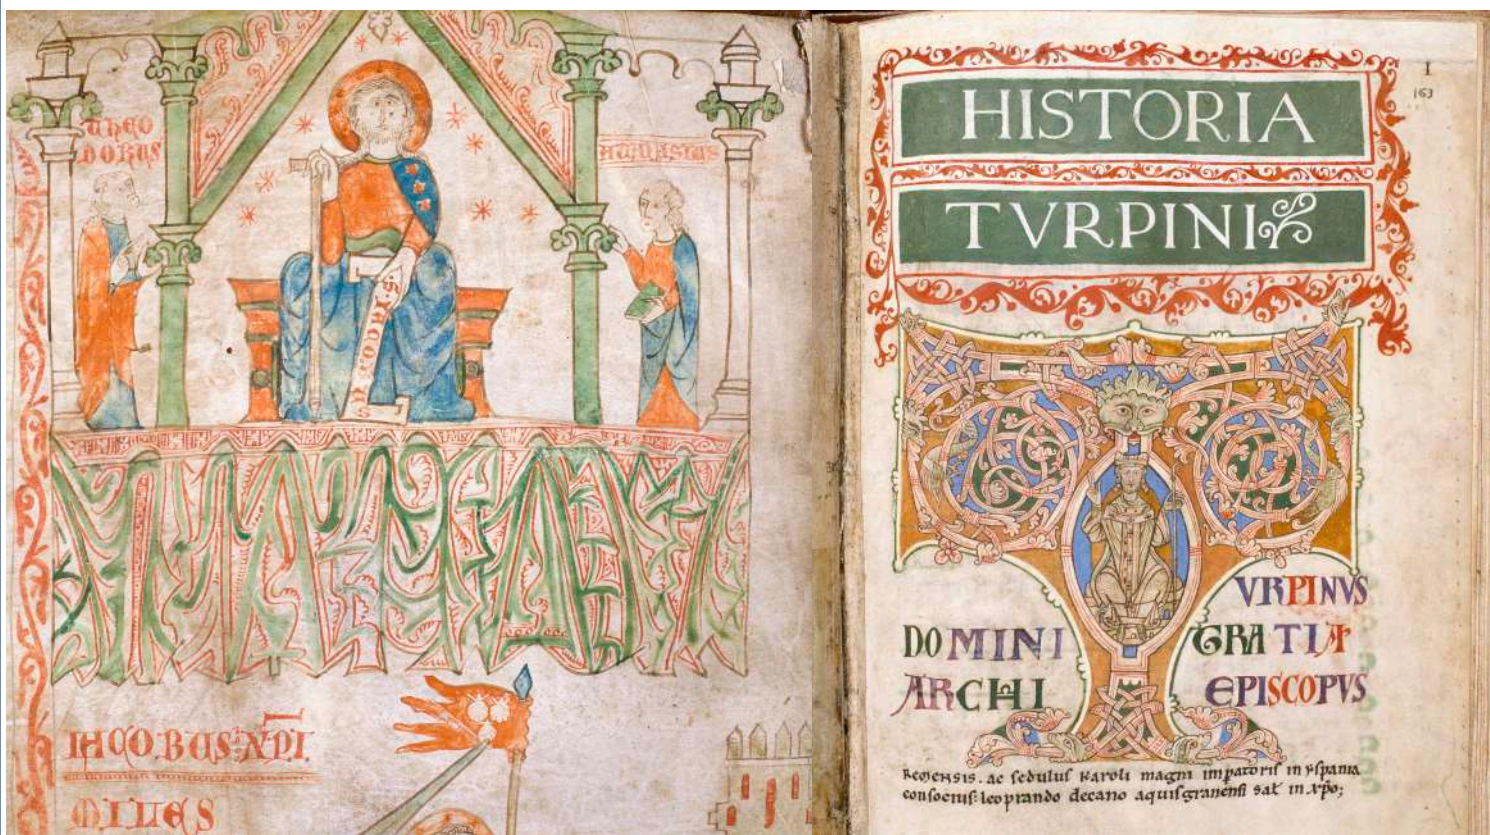 THEO
DORUS
ATHANASIUS
S. IACOBUS
IACO.BUS XPI
MILES
I
163
HISTORIA
TVRPINI
T
VRPINVS
DOMINI GRATIA
ARCHI EPISCOPVS
Remensis. ac sedulus Karoli magni impatoris in yspania
consocius: leoprando decano aquisgranensi sal in xpo;